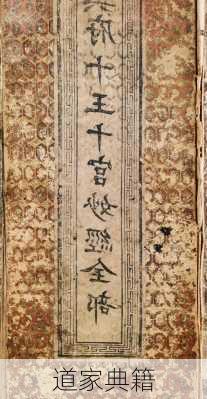 府十王十宮妙經全部
道家典籍